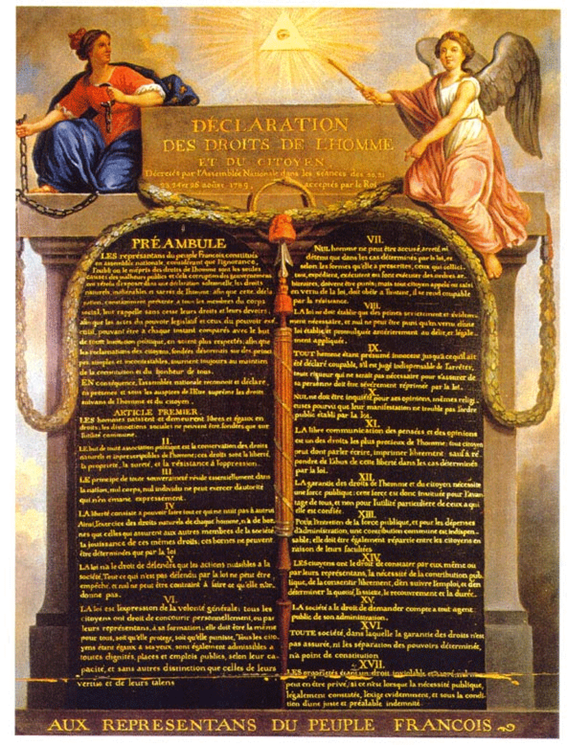 DÉCLARATION
DES DROITS DE L'HOMME
ET DU CITOYEN
Décretés par l'Assemblée Nationale dans les séances des 20, 21
23, 24 et 26 août 1789, acceptés par le Roi
PRÉAMBULE
LES représentans du peuple François constitués
en assemblée nationale, considérant que l'ignorance,
l'oubli ou le mépris des droits de l'homme sont les seules
causes des malheurs publics et de la corruption des gouvernemens
ont résolu d'exposer dans une déclaration solemnelle, les droits
naturels, inaliénables et sacrés de l'homme, afin que cette décla-
ration, constamment présente à tous les membres du corps
social, leur rappelle sans cesse leurs droits et leurs devoirs,
afin que les actes du pouvoir législatif et ceux du pouvoir exé-
cutif, pouvant être à chaque instant comparés avec le but
de toute institution politique, en soient plus respectés; afin que
les réclamations des citoyens, fondées désormais sur des princi-
pes simples et incontestables, tournent toujours au maintien
de la constitution et du bonheur de tous.
EN conséquence, l'assemblée nationale reconnoit et déclare,
en présence et sous les auspices de l'Etre suprême les droits
suivans de l'homme et du citoyen.
ARTICLE PREMIER.
LES hommes naissent et demeurent libres et égaux en
droits; les distinctions sociales ne peuvent être fondées que sur
l'utilité commune.
II.
LE but de toute association politique est la conservation des droits
naturels et imprescriptibles de l'homme; ces droits sont la liberté,
la propriété, la sureté, et la résistance à l'oppression.
III.
LE principe de toute souveraineté réside essentiellement dans
la nation, nul corps, nul individu ne peut exercer d'autorité
qui n'en émane expressément.
IV.
LA liberté consiste à pouvoir faire tout ce qui ne nuit pas à autrui
Ainsi, l'exercice des droits naturels de chaque homme, n'a de bor-
nes que celles qui assurent aux autres membres de la société
la jouissance de ces mêmes droits; ces bornes ne peuvent
être déterminées que par la loi
V.
LA loi n'a le droit de défendre que les actions nuisibles à la
société. Tout ce qui n'est pas défendu par la loi ne peut être
empêché, et nul ne peut être contraint à faire ce qu'elle n'or-
donne pas.
VI.
LA loi est l'expression de la volonté générale; tous les
citoyens ont droit de concourir personnellement, ou par
leurs représentans, à sa formation; elle doit être la même
pour tous, soit qu'elle protege, soit qu'elle punisse. Tous les cito-
yens étant égaux à ses yeux, sont également admissibles à
toutes dignités, places et emplois publics, selon leur ca-
pacité, et sans autres distinction que celles de leurs
vertus et de leurs talens
VII.
NUL homme ne peut être accusé, arreté, ni
détenu que dans les cas déterminés par la loi, et
selon les formes qu'elle a prescrites, ceux qui sollici-
tent, expédient, exécutent ou font exécuter des ordres ar-
bitraires, doivent être punis; mais tout citoyen appelé ou saisi
en vertu de la loi, doit obéir à l'instant, il se rend coupable
par la résistance.
VIII.
LA loi ne doit établir que des peines strictement et évidem-
ment nécessaire, et nul ne peut être puni qu'en vertu d'une
loi établie et promulguée antérieurement au délit, et légale-
ment appliquée.
IX.
TOUT homme étant présumé innocent jusqu'à ce qu'il ait
été déclaré coupable, s'il est jugé indispensable de l'arrêter,
toute rigueur qui ne serait pas nécessaire pour s'assurer de
sa personne doit être sévèrement réprimée par la loi.
X.
NUL ne doit être inquiété pour ses opinions, mêmes religi-
euses pourvu que leur manifestation ne trouble pas l'ordre
public établi par la loi.
XI.
LA libre communication des pensées et des opinions
est un des droits les plus precieux de l'homme; tout citoyen
peut donc parler écrire, imprimer librement, sauf à ré-
pondre de l'abus de cette liberté dans les cas déterminés
par la loi.
XII.
LA garantie des droits de l'homme et du citoyen nécessite
une force publique; cette force est donc instituée pour l'avan-
tage de tous, et non pour l'utilité particuliere de ceux à qui
elle est confiée.
XIII.
Pour l'entretien de la force publique, et pour les dépenses
d'administration, une contribution commune est indispen-
sable; elle doit être également répartie entre les citoyens en
raison de leurs facultées
XIV.
LES citoyens ont le droit de constater par eux même ou
par leurs représentans, la nécessité de la contribution pub-
lique, de la consentir librement, d'en suivre l'emploi, et d'en
déterminer la quotité, l'assiette, le recouvrement et la durée.
XV.
LA société a le droit de demander compte à tout agent
public de son administration.
XVI.
TOUTE société, dans laquelle la garantie des droits n'est
pas assurée, ni les séparation des pouvoirs déterminée,
n'a point de constitution
XVII.
LES propriétés étant un droit inviolable et sacré, nul ne
peut en être privé, si ce n'est lorsque la nécessité publique,
légalement constatée, l'exige évidemment, et sous la condi-
tion d'une juste et préalable indemnité.
AUX REPRESENTANS DU PEUPLE FRANCOIS